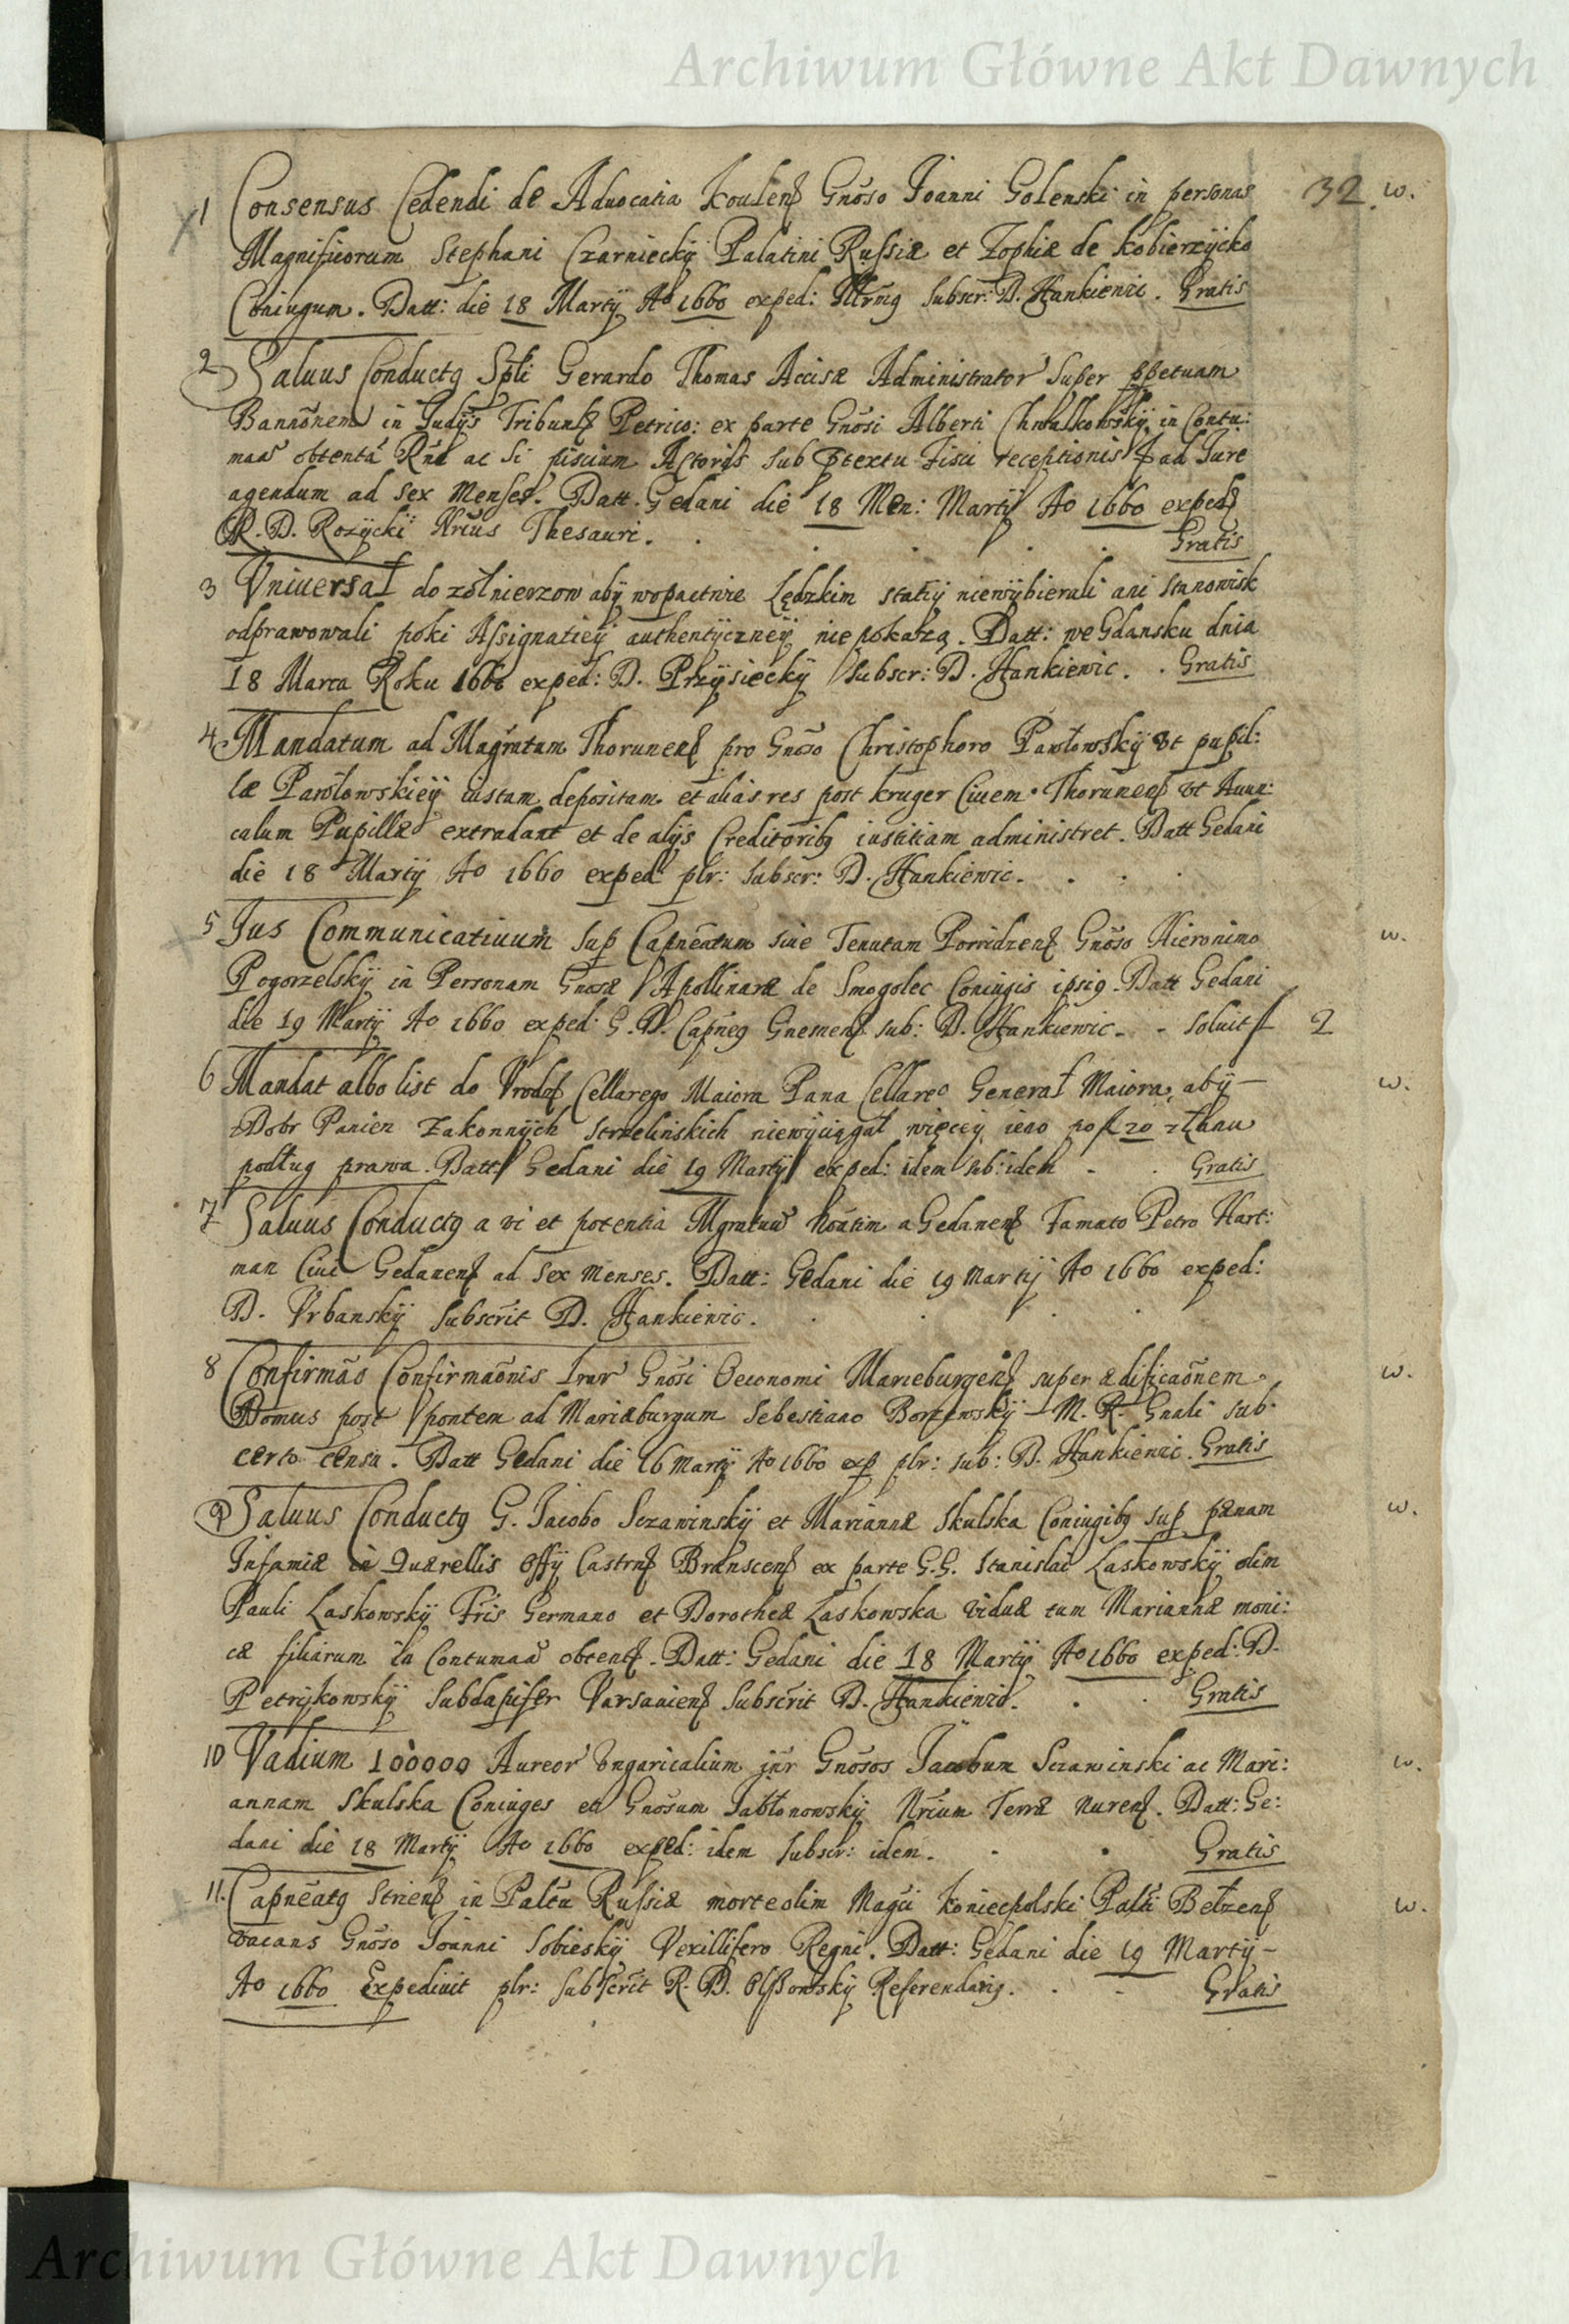 Archiwum Główne Akt Dawnych
32 w.
1 Consensus Cedendi de Aduocatia Gnõso Joanni Golenski in personas
Magnificorum Stephani Czarniecký Palatini Russiæ et Zophiæ de Kobierzýcko
Coniugum. Datt: die 18 Martÿ Aº 1660 exped: Subscr: D. Hankiewic. Gratis
2 Saluus Conductꝯ Spli Gerardo Thomas Accisæ Administrator Super ꝑpetuam
Bannõnem in Judÿs Tribunlꝭ Petrico: ex parte Gnõsi Alberti Chwalkowskÿ in Contu:
obtenta ac Si Actoris sub ꝓtextu Fisci receptionis ad Jure
agendum ad sex Menses. Datt. Gedani die 18 Men: Martÿ Aº 1660 exped
R. D. Rozýcki Nrius Thesauri. Gratis
3 Vniuersał do zołnierzow abÿ wopactwie Lędzkim statiÿ niewÿbierali ani stanowisk
odprawowali poki Assignatieÿ authentÿczneÿ niepokażą. Datt: we Gdansku dnia
18 Marca Roku 1660 exped: D. Przÿsieckÿ Subscr: D. Hankiewic. Gratis
4 Mandatum ad Magratum Thorunenꝭ pro Gnõso Christophoro Pawłowskÿ vt pupil:
læ Pawłowskieÿ iustam depositam et alias res post Kruger Ciuem Thorunenꝭ vt Auun:
culum Pupillæ extradant et de alÿs Creditoribꝯ iustitiam administret. Datt Gedani
die 18 Martÿ Aº 1660 exped plr: Subscr: D. Hankiewic.
5 Jus Communicatiuum sup Capneatum siue Tenutam Gnõso Hieronimo w.
Pogorzelskÿ in Personam Gnosæ Apollinaræ de Smogolec Coniugis ipsiꝯ. Datt Gedani
die 19 Martÿ Aº 1660 exped: G. D. Capneꝯ Gnemenꝭ sub: D. Hankiewic. soluit f 2
6 Mandat albo list do Vrodzꝭ Cellarego Maiora Pana Cellareº Generał Maiora, abÿ w.
Dobr Panien Zakonnÿch Strzelinskich niewÿciągał więceÿ iego po f 20 z łanu
podług prawa. Datt Gedani die 19 Martÿ exped: idem sub: idem Gratis
7 Saluus Conductꝯ a vi et potentia a Gedanenꝭ Famato Petro Hart:
man Ciui Gedanenꝭ ad Sex Menses. Datt: Gedani die 19 Martÿ Aº 1660 exped:
D. Vrbanskÿ Subscrit D. Hankiewic.
8 Confirmão Confirmaõnis Gnõsi Oeconomi Marieburgenꝭ super ædificaõnem w.
Domus post pontem ad Mariæburgum Sebestiano Borzewskÿ M. R. Gnali sub
certo censu. Datt Gedani die 16 Martÿ Aº 1660 exp plr: sub: D. Hankiewic. Gratis
9 Saluus Conductꝯ G. Jacobo Sczawinskÿ et Mariannæ Skulska Coniugibꝯ sup pænam w.
Infamiæ in Quærellis Offÿ Castrnꝭ Branscenꝭ ex parte G.G. Stanislai Laskowskÿ olim
Pauli Laskowskÿ Fris Germano et Dorotheæ Laskowska viduæ tum Mariannæ moni:
cæ filiarum in Contumaa obtenꝭ. Datt: Gedani die 18 Martÿ Aº 1660 exped: D.
Petrÿkowskÿ Subdapifer Varsauienꝭ Subscrit D. Hankiewic. Gratis
10 Vadium 100000 Aureor Vngaricalium inr Gnõsos Jacobum Sczawinski ac Mari: w.
annam Skulska Coniuges et Gnõsum Jabłonowskÿ Nrium Terræ Nurenꝭ. Datt: Ge:
dani die 18 Martÿ Aº 1660 exped: idem Subscr: idem. Gratis
11. Capneatꝯ Strienꝭ in Paltu Russiæ morte olim Magci Koniecpolski Palti Bełzenꝭ w.
vacans Gnõso Joanni Sobieskÿ Vexillifero Regni. Datt: Gedani die 19 Martÿ
Aº 1660 Expediuit plr: Subscrit R. D. Olszowskÿ Referendariꝯ. Gratis
Archiwum Główne Akt Dawnych